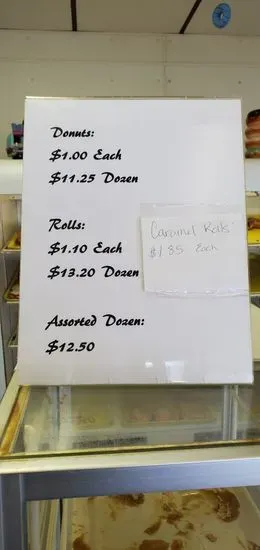 Donuts:
$1.00 Each
$11.25 Dozen
Rolls:
$1.10 Each
$13.20 Dozen
Caramel Rolls
$1.85 Each
Assorted Dozen:
$12.50